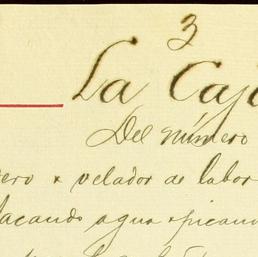 3
La Caja
Del número
ero x velador de labor
sacando agua x picand